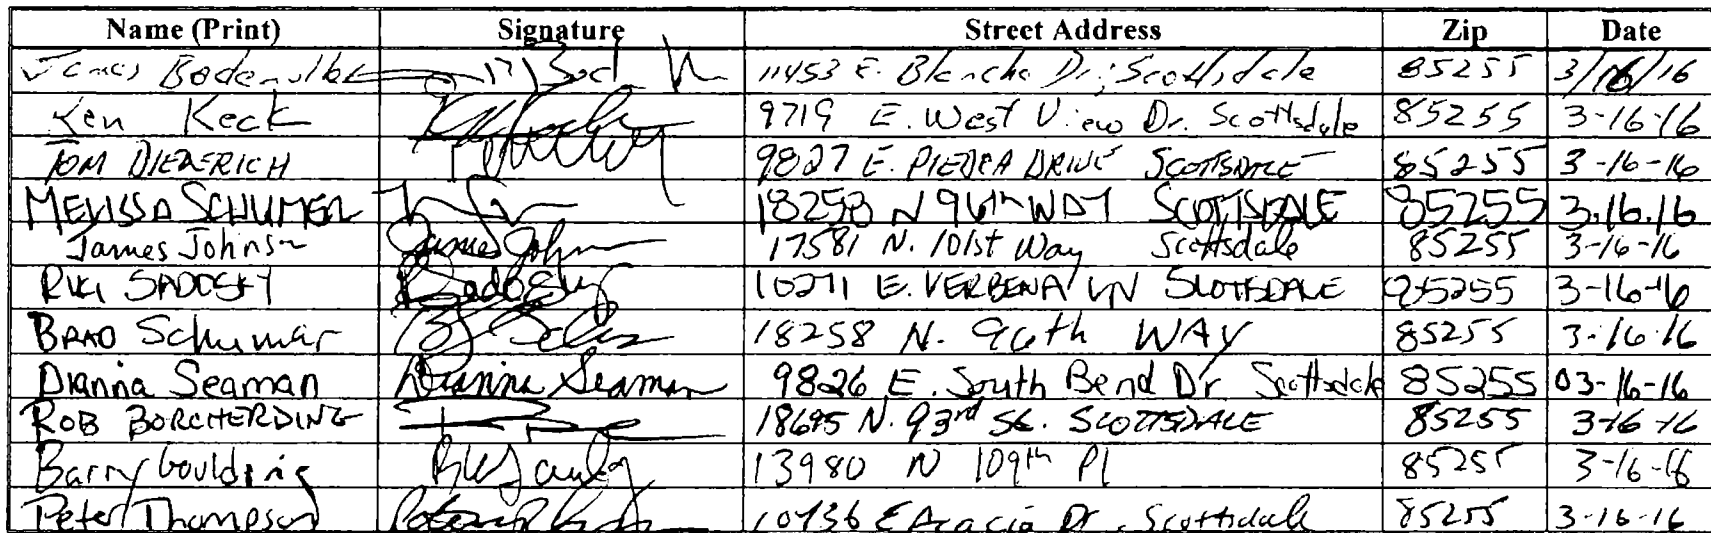 Name (Print) Signature Street Address Zip Date
James 11453 E. Blanche Dr; Scottsdale 85255 3/16/16
Ken Keck 9719 E. West View Dr. Scottsdale 85255 3-16-16
TOM DIEDERICH 9827 E. PIEDRA DRIVE SCOTTSDALE 85255 3-16-16
MELISSA SCHUMER 18258 N 96th WAY SCOTTSDALE 85255 3.16.16
James Johnson James John 17581 N. 101st Way Scottsdale 85255 3-16-16
RIKI SADOSKY Sadosky 10271 E. VERBENA LN SCOTTSDALE 85255 3-16-16
BRAD Schumar 18258 N. 96th WAY 85255 3-16-16
Dianna Seaman Dianna Seaman 9826 E. South Bend Dr Scottsdale 85255 03-16-16
ROB BORCHERDING 18695 N. 93rd St. SCOTTSDALE 85255 3-16-16
Barry Goulding 13980 N 109th Pl 85255 3-16-16
Peter Thompson 10436 E Acacia Dr. Scottsdale 85255 3-16-16